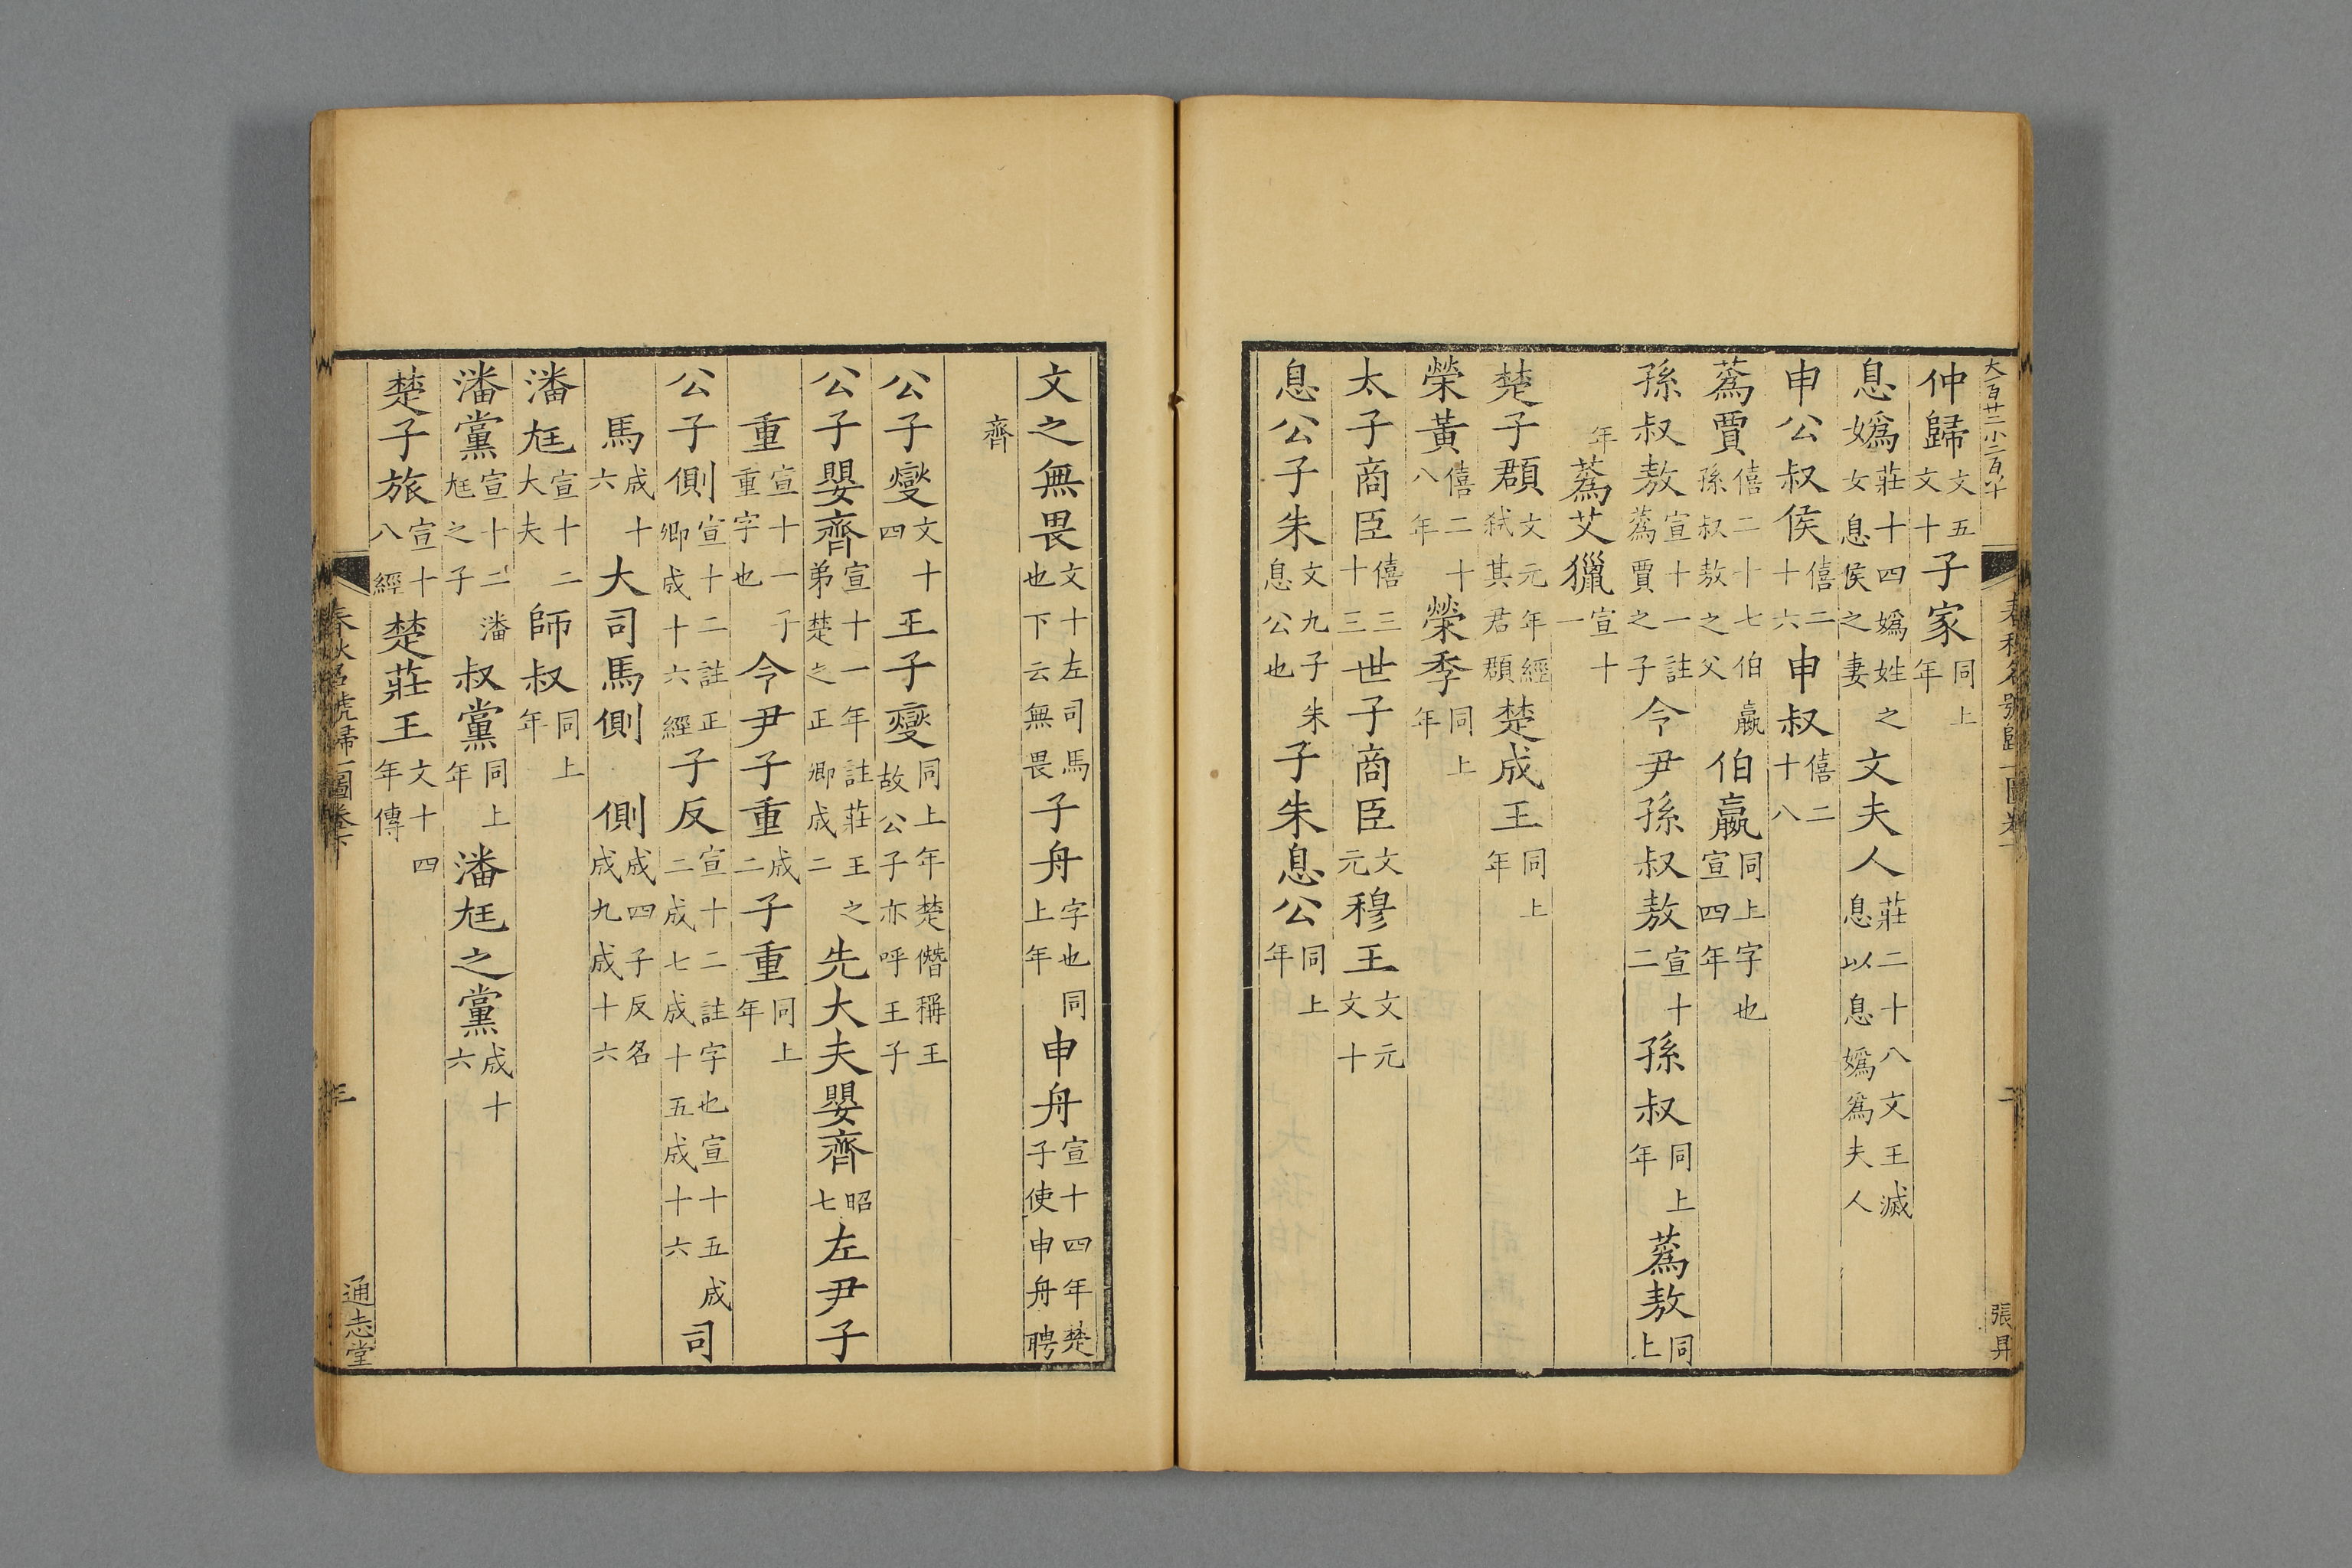 大百廿二小二百卆
張昇
仲歸文五文十子家同上年
息嬀莊十四嬀姓之女息侯之妻文夫人莊二十八文王滅息以息嬀爲夫人
申公叔侯僖二十六申叔僖二十八
蒍賈僖二十七伯嬴孫叔敖之父伯嬴同上字也宣四年
孫叔敖宣十一註蒍賈之子令尹孫叔敖宣十二孫叔同上年蒍敖同上
年蒍艾獵宣十一
楚子頵文元年經弑其君頵楚成王同上年
榮黃僖二十八年榮季同上年
太子商臣僖三十三世子商臣文元穆王文元文十
息公子朱文九子朱息公也子朱息公同上年
文之無畏文十左司馬也下云無畏子舟字也同上年申舟宣十四年楚子使申舟聘
齊
公子燮文十四王子燮同上年楚僭稱王故公子亦呼王子
公子嬰齊宣十一年註莊王之弟楚之正卿成二先大夫嬰齊昭七左尹子
重宣十一子重字也令尹子重成二子重同上年
公子側宣十二註正卿成十六經子反宣十二註字也宣十五成二成七成十五成十六司
馬成十六大司馬側側成四子反名成九成十六
潘尫宣十二大夫師叔同上年
潘黨宣十二潘尫之子叔黨同上年潘尫之黨成十六
楚子旅宣十八經楚莊王文十四年傳
春秋名號歸一圖卷下
通志堂